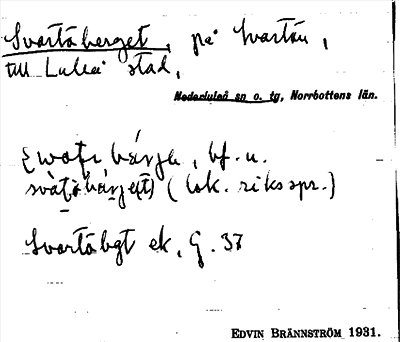 Svartåberget, på Svartön,
till Luleå stad,
Nederluleå sn o. tg, Norrbottens län.
bärja, bf. u.
(lok. riksspr.)
Svartåbgt ek, G. 37
EDVIN BRÄNNSTRÖM 1931.